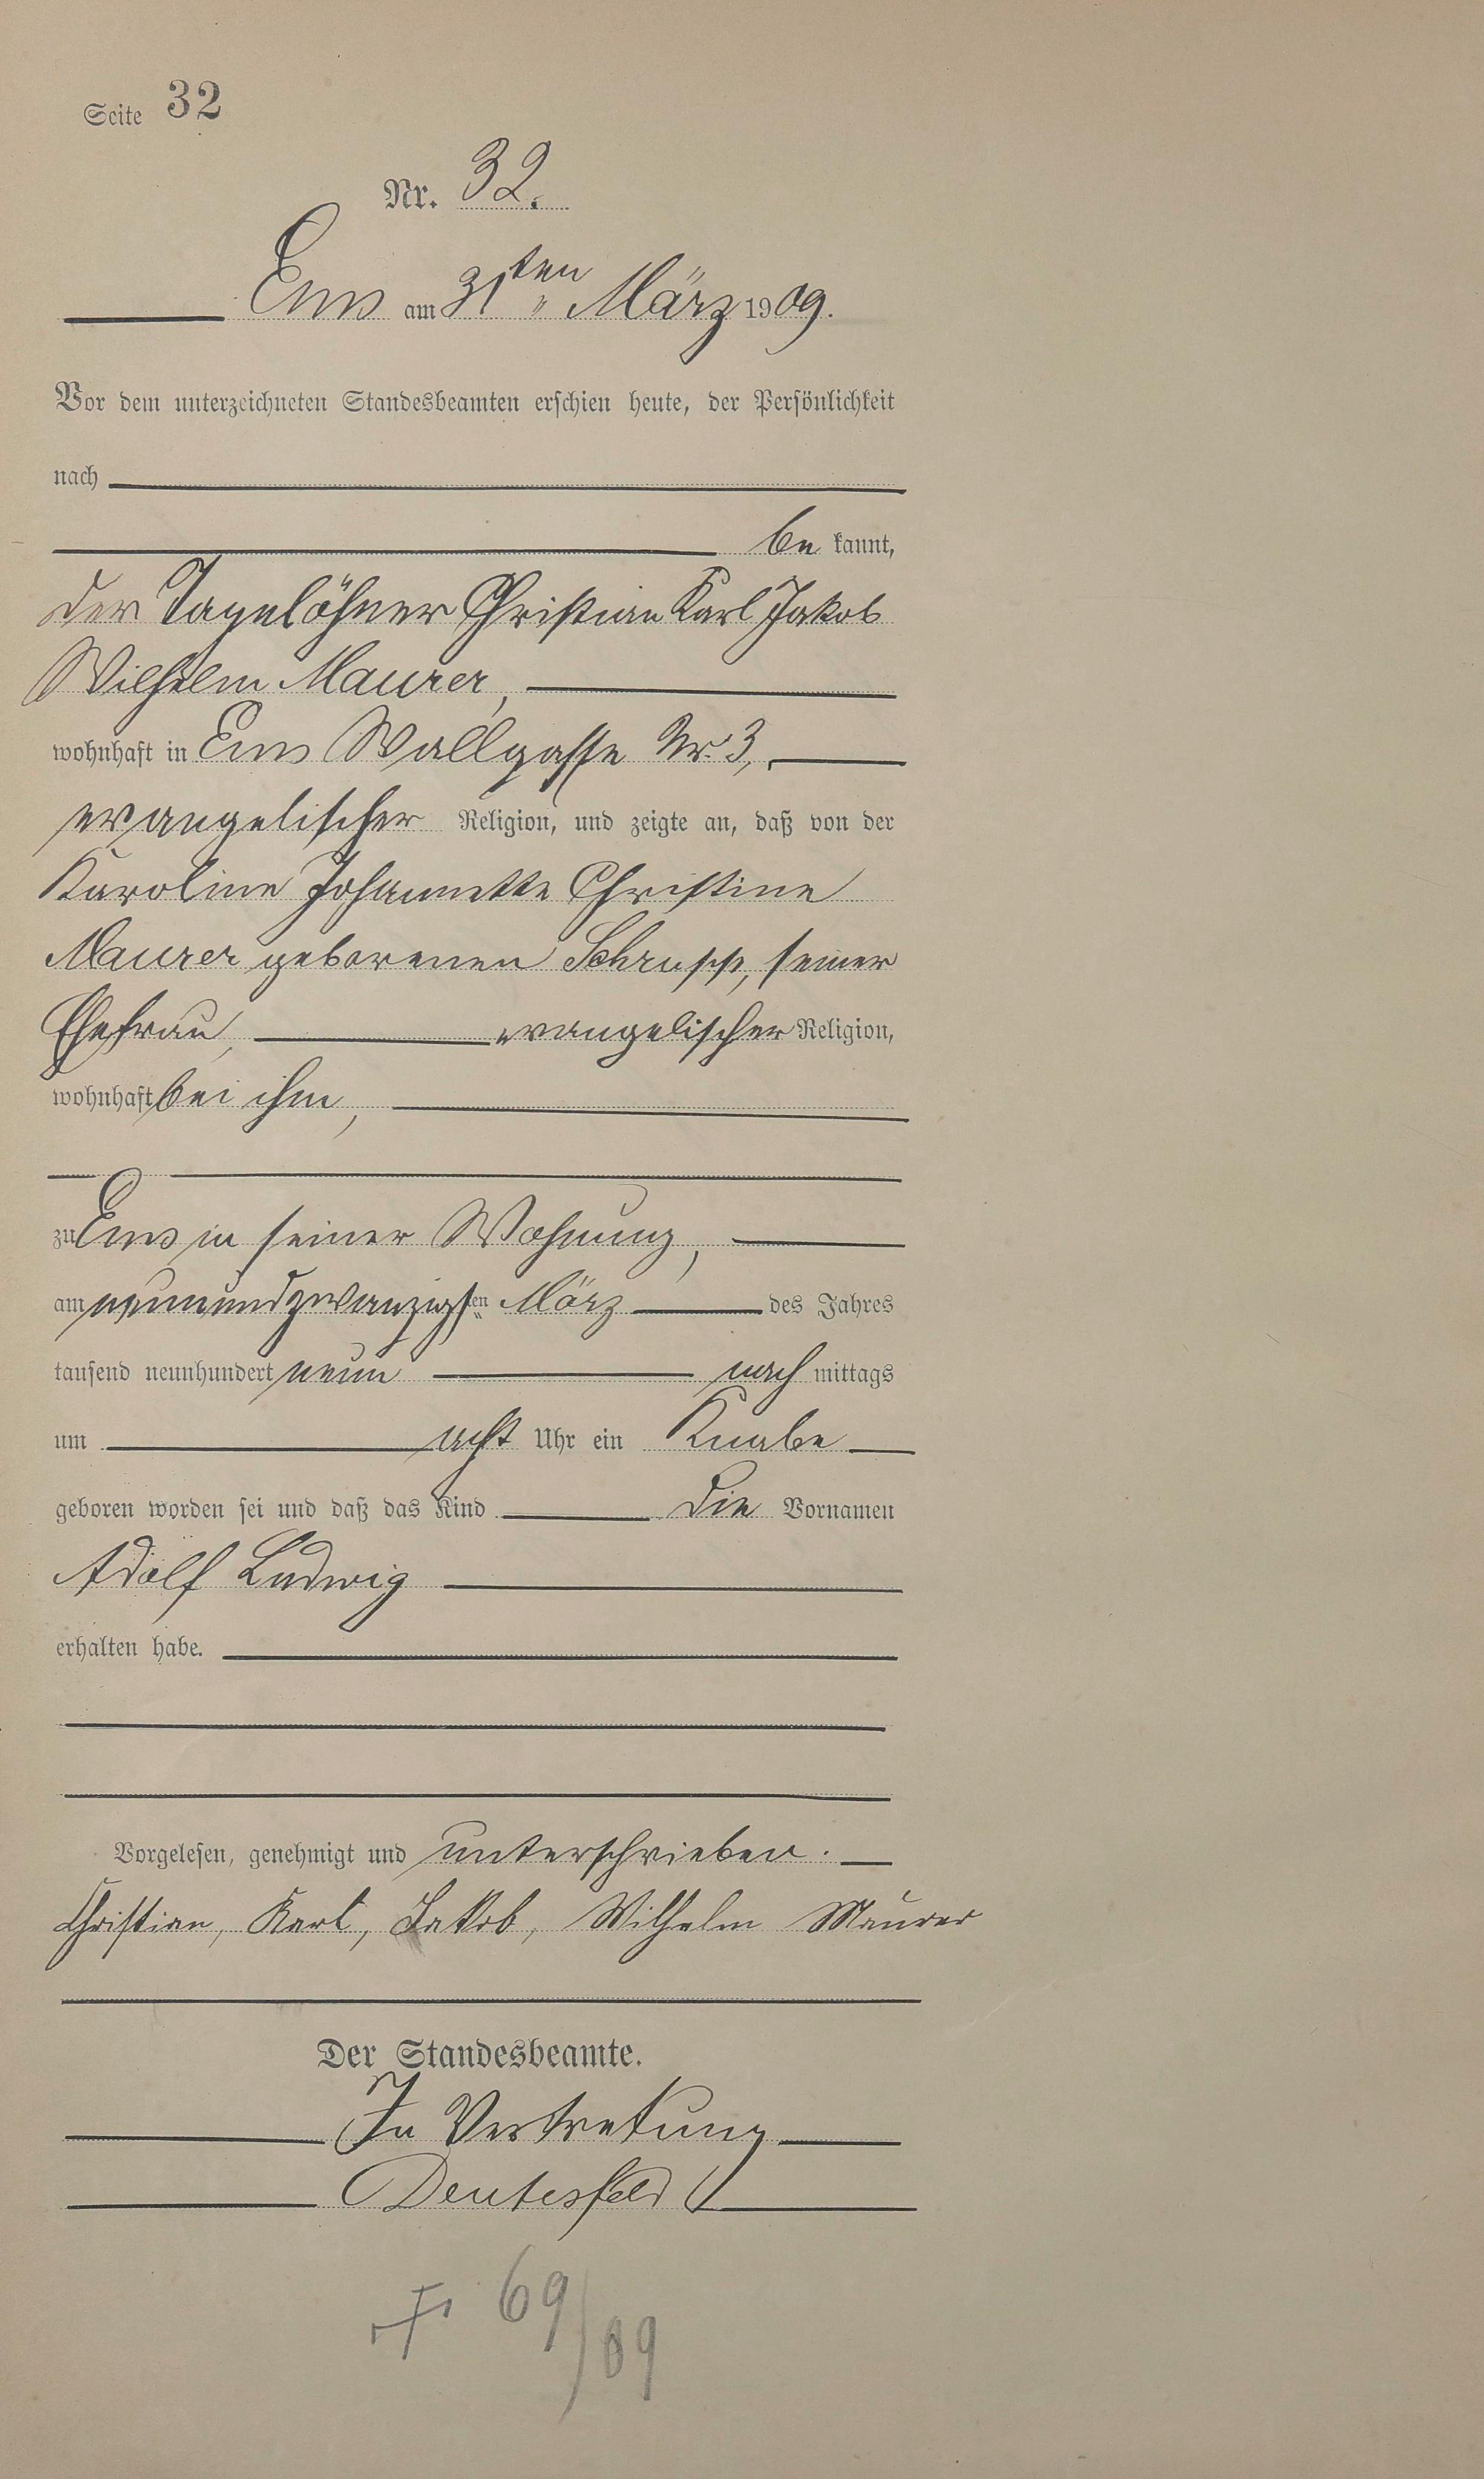 Seite 32
Nr. 32.
Ems am 31ten März 1909.
Vor dem unterzeichneten Standesbeamten erschien heute, der Persönlichkeit
nach
be kannt,
der Tagelöhner Christian Karl Jakob
Wilhelm Maurer,
wohnhaft in Ems Wallgasse Nr. 3,
evangelischer Religion, und zeigte an, daß von der
Karoline Johannette Christine
Maurer geborenen Schrupp, seiner
Ehefrau, evangelischer Religion,
wohnhaft bei ihm,
zu Ems in seiner Wohnung,
am neunundzwanzigsten März des Jahres
tausend neunhundert neun nach mittags
um acht Uhr ein Knabe
geboren worden sei und daß das Kind die Vornamen
Adolf Ludwig
erhalten habe.
Vorgelesen, genehmigt und unterschrieben.
Christian, Karl, Jakob, Wilhelm Maurer
Der Standesbeamte.
In Vertretung
69/09